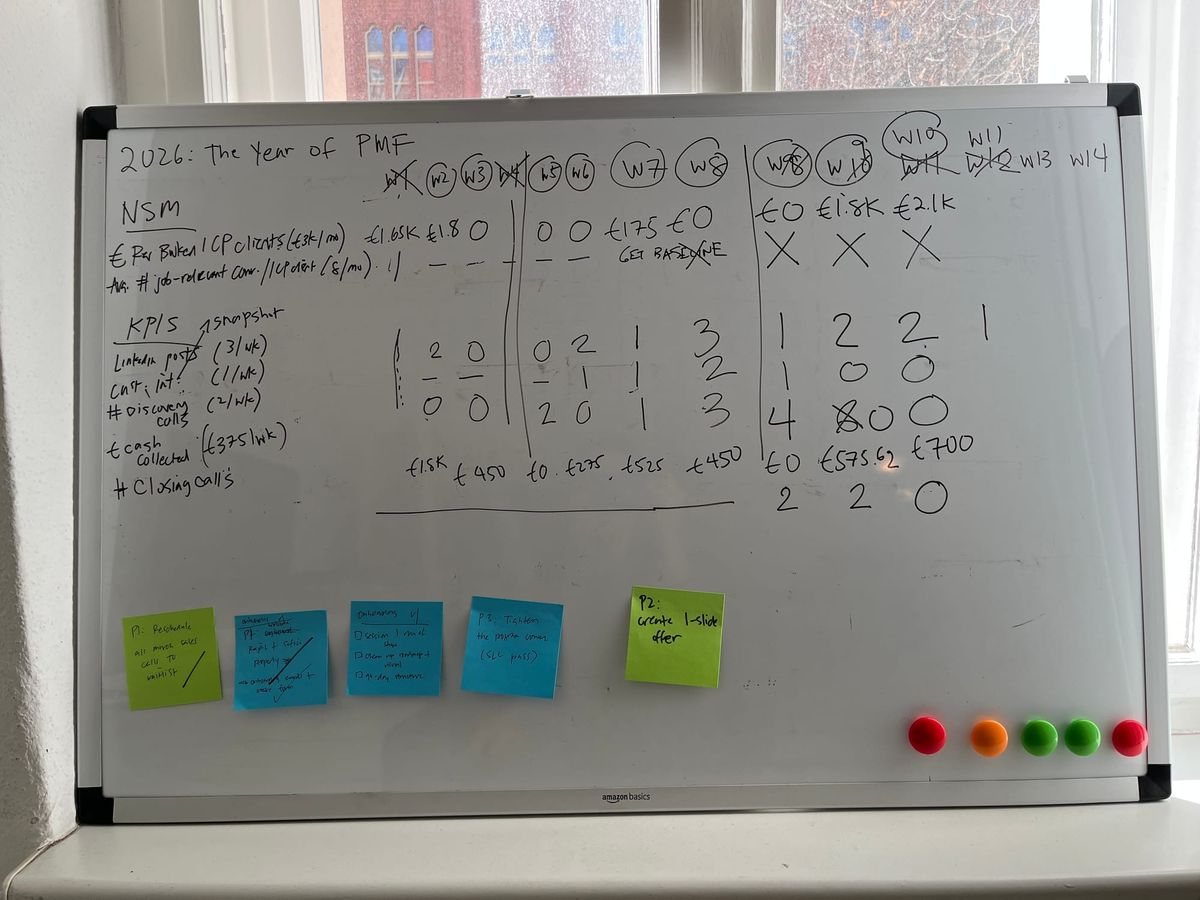 2026: The Year of PMF
W1 W2 W3 W4 W5 W6 W7 W8 W9 W10 W10 W11 W13 W14
NSM
€ Rev Banked ICP clients (€3k/mo) €1.65K €1.8 0 0 0 €175 €0 €0 €1.8K €2.1K
Avg. # job-relevant conv./ICP client (8/mo) - - - - - GET BASELINE X X X
KPIs snapshot
LinkedIn posts (3/wk) 2 0 0 2 1 3 1 2 2 1
Cust. int. (1/wk) - - - 1 1 2 1 0 0
# Discovery calls (2/wk) 0 0 2 0 1 3 4 0 0
€ cash collected (€375/wk) €1.8K €450 €0 €275 €525 €450 €0 €575.62 €700
# Closing calls 2 2 0
P1: Reschedule
all march sales
calls to
waitlist
session 1
P3: Tighten
the
(SLC pass)
P2:
create 1-slide
offer
amazon basics